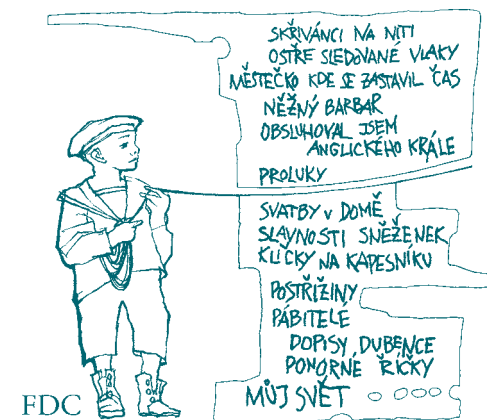 SKŘIVÁNCI NA NITI
OSTŘE SLEDOVANÉ VLAKY
MĚSTEČKO KDE SE ZASTAVIL ČAS
NĚŽNÝ BARBAR
OBSLUHOVAL JSEM
ANGLICKÉHO KRÁLE
PROLUKY
SVATBY V DOMĚ
SLAVNOSTI SNĚŽENEK
KLIČKY NA KAPESNÍKU
POSTŘIŽINY
PÁBITELÉ
DOPISY DUBENCE
PONORNÉ ŘÍČKY
MŮJ SVĚT
FDC